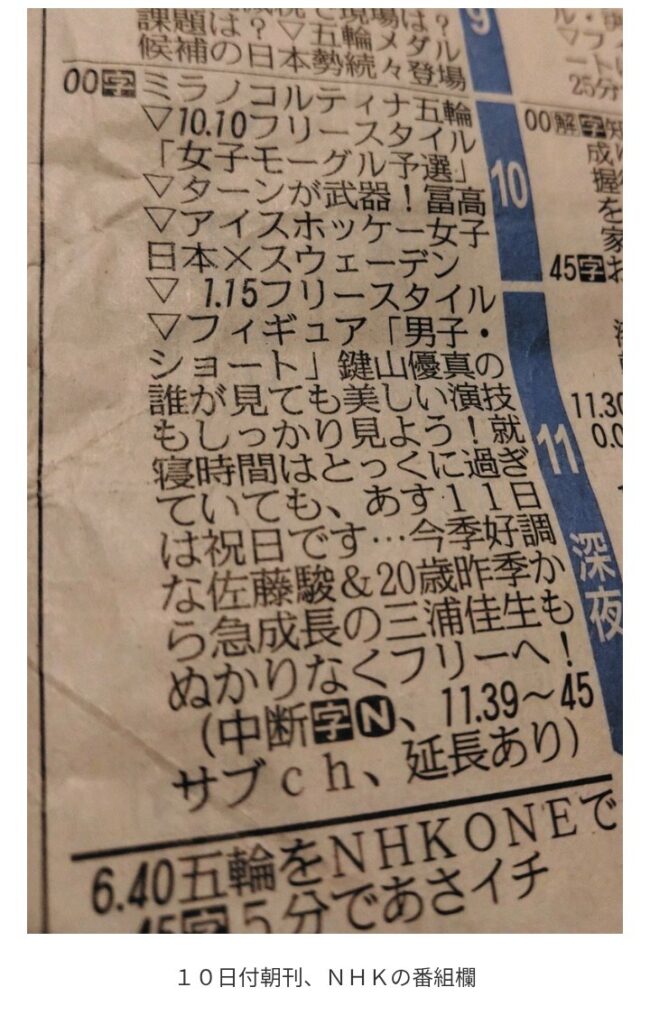 課題は？
候補の日本勢続々登場
▽五輪メダル
9
00字ミラノコルティナ五輪
▽10.10フリースタイル
「女子モーグル予選」
▽ターンが武器！冨高
▽アイスホッケー女子
日本×スウェーデン
▽ 1.15フリースタイル
▽フィギュア「男子・
ショート」鍵山優真の
誰が見ても美しい演技
もしっかり見よう！就
寝時間はとっくに過ぎ
ていても、あす１１日
は祝日です…今季好調
な佐藤駿＆20歳昨季か
ら急成長の三浦佳生も
ぬかりなくフリーへ！
（中断字N、11.39～45
サブｃｈ、延長あり）
6.40五輪をＮＨＫＯＮＥで
45字５分であさイチ
10
11
深夜
25分
00解字知
成
握
を
家
45字お
11.30
0.0
１０日付朝刊、ＮＨＫの番組欄